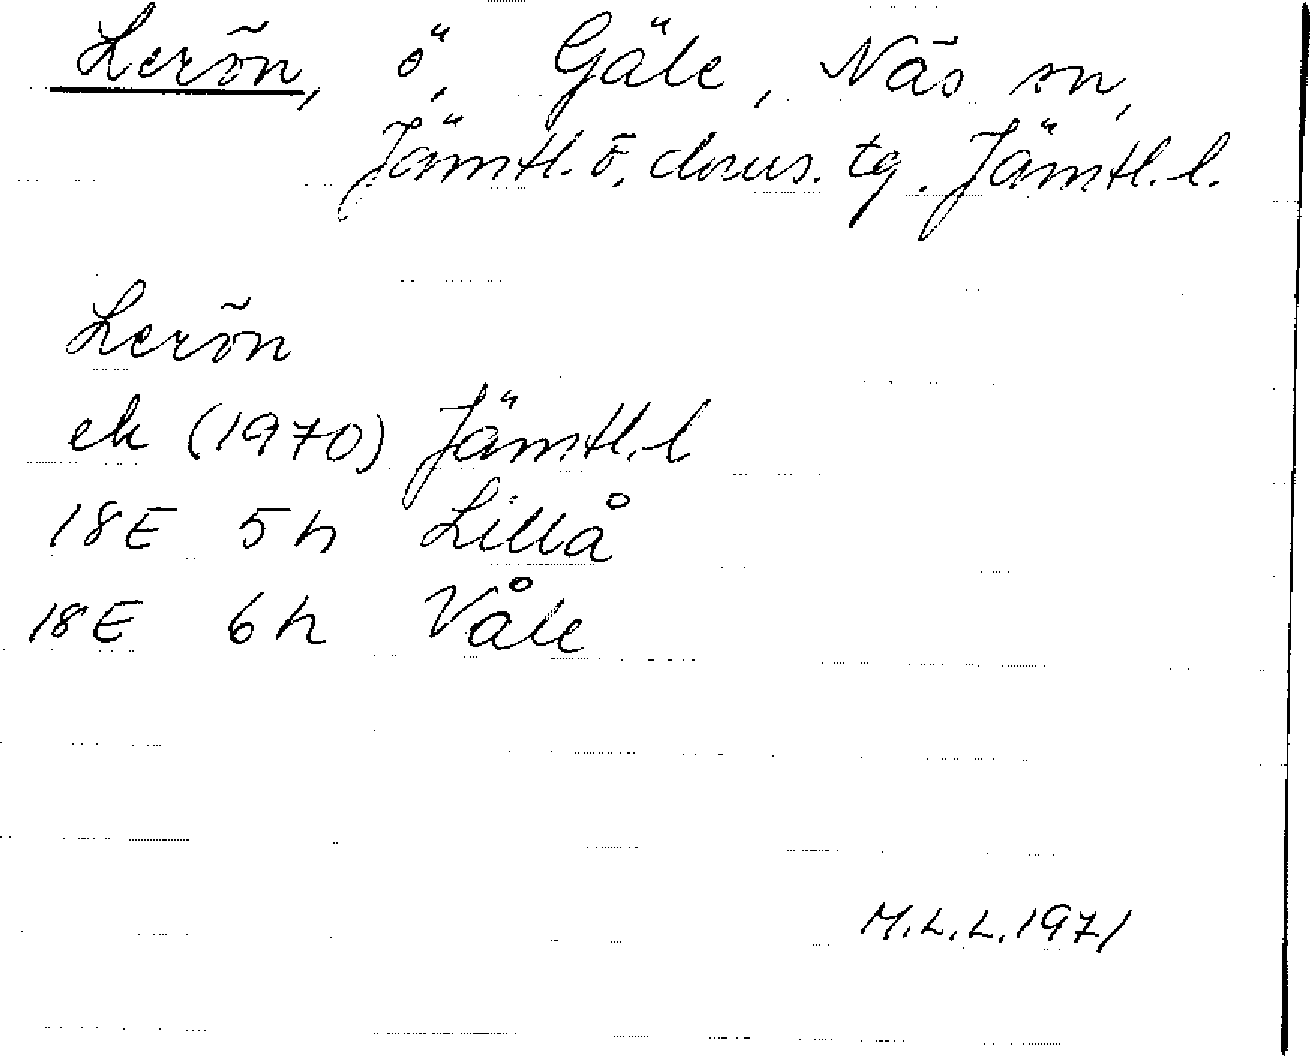 Lerön, ö, Gäle, Näs sn,
Jämtl. ö. doms. tg. Jämtl. l.
Lerön
ek (1970) Jämtl. l
18E 5h Lillå
18E 6h Våle
M.L.L. 1971